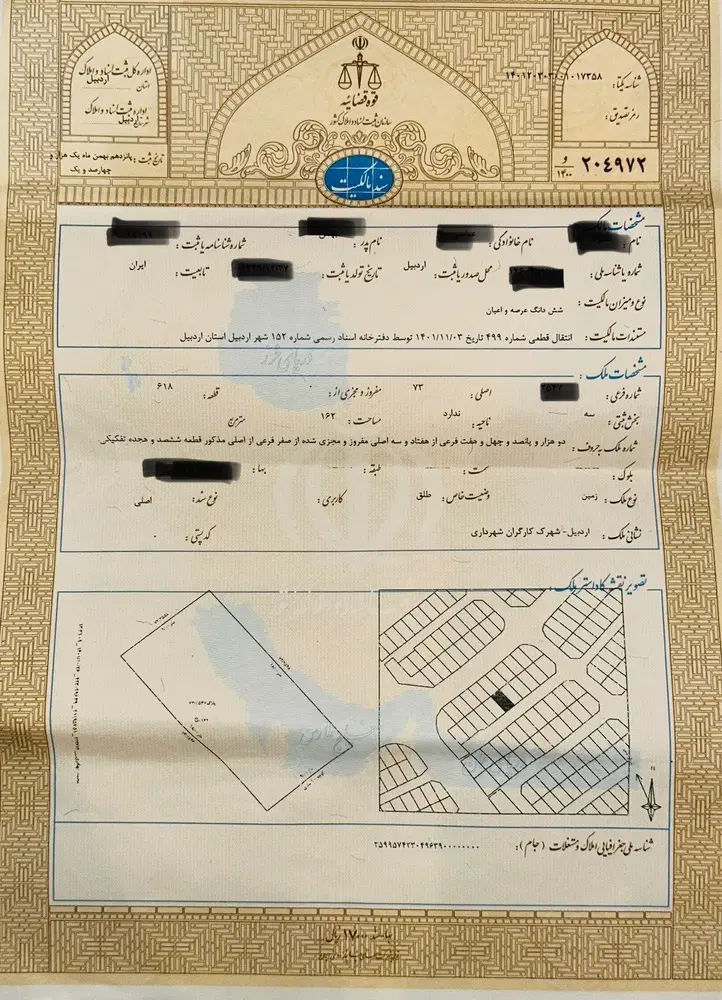 قوه قضائیه
سازمان ثبت اسناد و املاک کشور
اداره کل ثبت اسناد و املاک
استان اردبیل
اداره ثبت اسناد و املاک
شهرستان اردبیل
تاریخ ثبت : پانزدهم بهمن ماه یک هزار و چهارصد و یک
شناسه یکتا :
رمز تصدیق :
۲۰۴۹۷۲
و
۱۴۰۰
سند مالکیت
مشخصات مالک
نام : نام خانوادگی : نام پدر : شماره شناسنامه یا ثبت :
شماره یا شناسه ملی : محل صدور یا ثبت : اردبیل تاریخ تولد یا ثبت : تابعیت : ایران
نوع و میزان مالکیت : شش دانگ عرصه و اعیان
مستندات مالکیت : انتقال قطعی شماره ۴۹۹ تاریخ ۱۴۰۱/۱۱/۰۳ توسط دفترخانه اسناد رسمی شماره ۱۵۲ شهر اردبیل استان اردبیل
دریای خزر
مشخصات ملک
شماره فرعی : اصلی : ۷۳ مفروز و مجزی از : ۰ قطعه : ۶۱۸
بخش ثبتی : سه ناحیه : ندارد مساحت : ۱۶۲ مترمربع
شماره ملک به حروف : دو هزار و پانصد و چهل و هفت فرعی از هفتاد و سه اصلی مفروز و مجزی شده از صفر فرعی از اصلی مذکور قطعه ششصد و هجده تفکیکی.
بلوک : سمت : طبقه : بها :
نوع ملک : زمین وضعیت خاص : طلق کاربری : نوع سند : اصلی
نشانی ملک : اردبیل- شهرک کارگران شهرداری کد پستی : ۰
تصویر نقشه کاداستر ملک
خلیج فارس
شناسه ملی جغرافیایی املاک و مستغلات (جام) : ۲۵۹۹۵۷۴۲۳۰۴۹۶۳۹۰۰۰۰۰۰۰۰